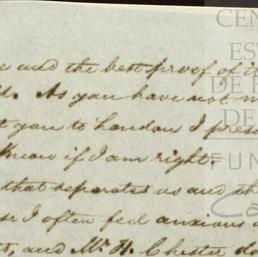 e and the best proof of it
d. As you have not m
t you to London I pres
know if I am right.
that separates us and th
se I often feel anxious
t, and Mr. H. Chester do
CEN
ES
DE
DE
FUN
Ca